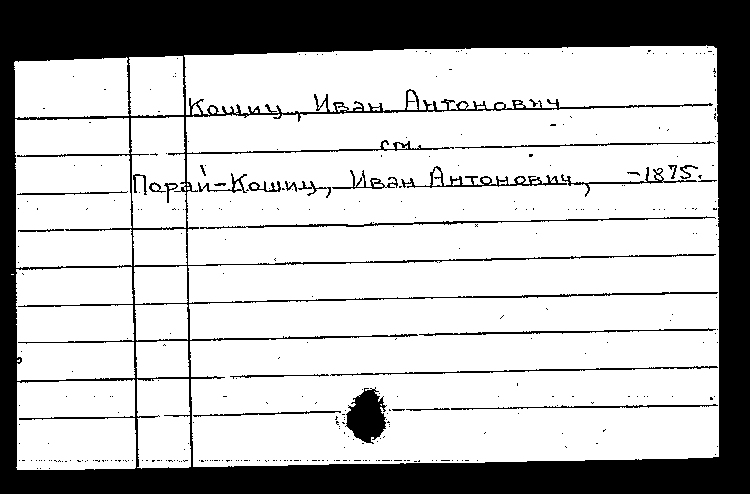 Кошиц, Иван Антонович
см.
Порай-Кошиц, Иван Антонович, -1875.